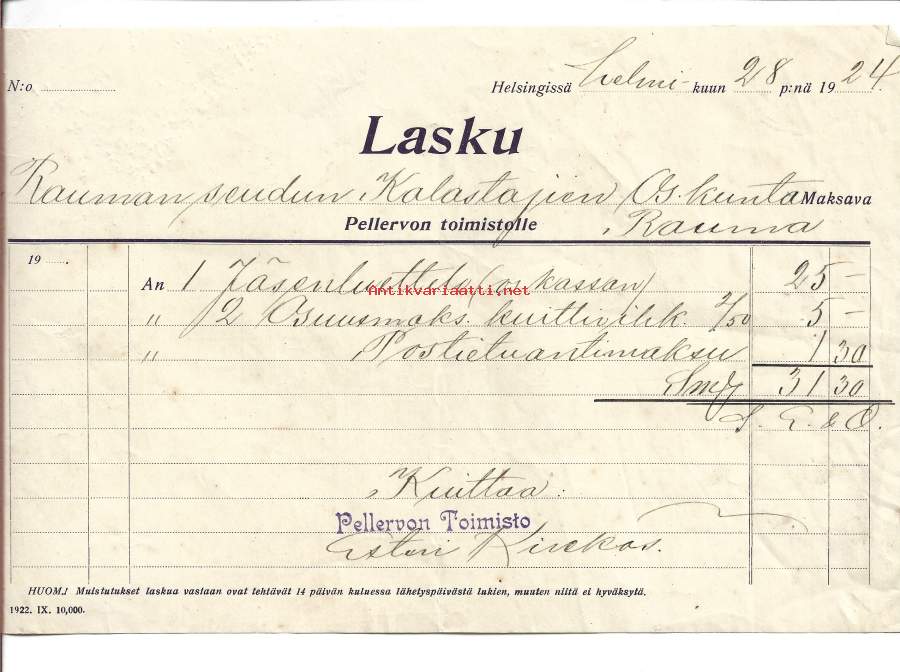 N:o
Helsingissä helmi- kuun 28 p:nä 1924.
Lasku
Rauman seudun Kalastajien Os. kunta Maksava
Pellervon toimistolle Rauma
19
An 1 Jäsenluettelo (os kassan) 25 –
Antikvariaatti.net
„ 2 Osuusmaks. kuittivihk. 2/50 5 –
„ Postietuantimaksu 1 30
Smk 31 30
S. E. & O.
Kuittaa:
Pellervon Toimisto
Esteri
HUOM.! Muistutukset laskua vastaan ovat tehtävät 14 päivän kuluessa lähetyspäivästä lukien, muuten niitä ei hyväksytä.
1922. IX. 10,000.